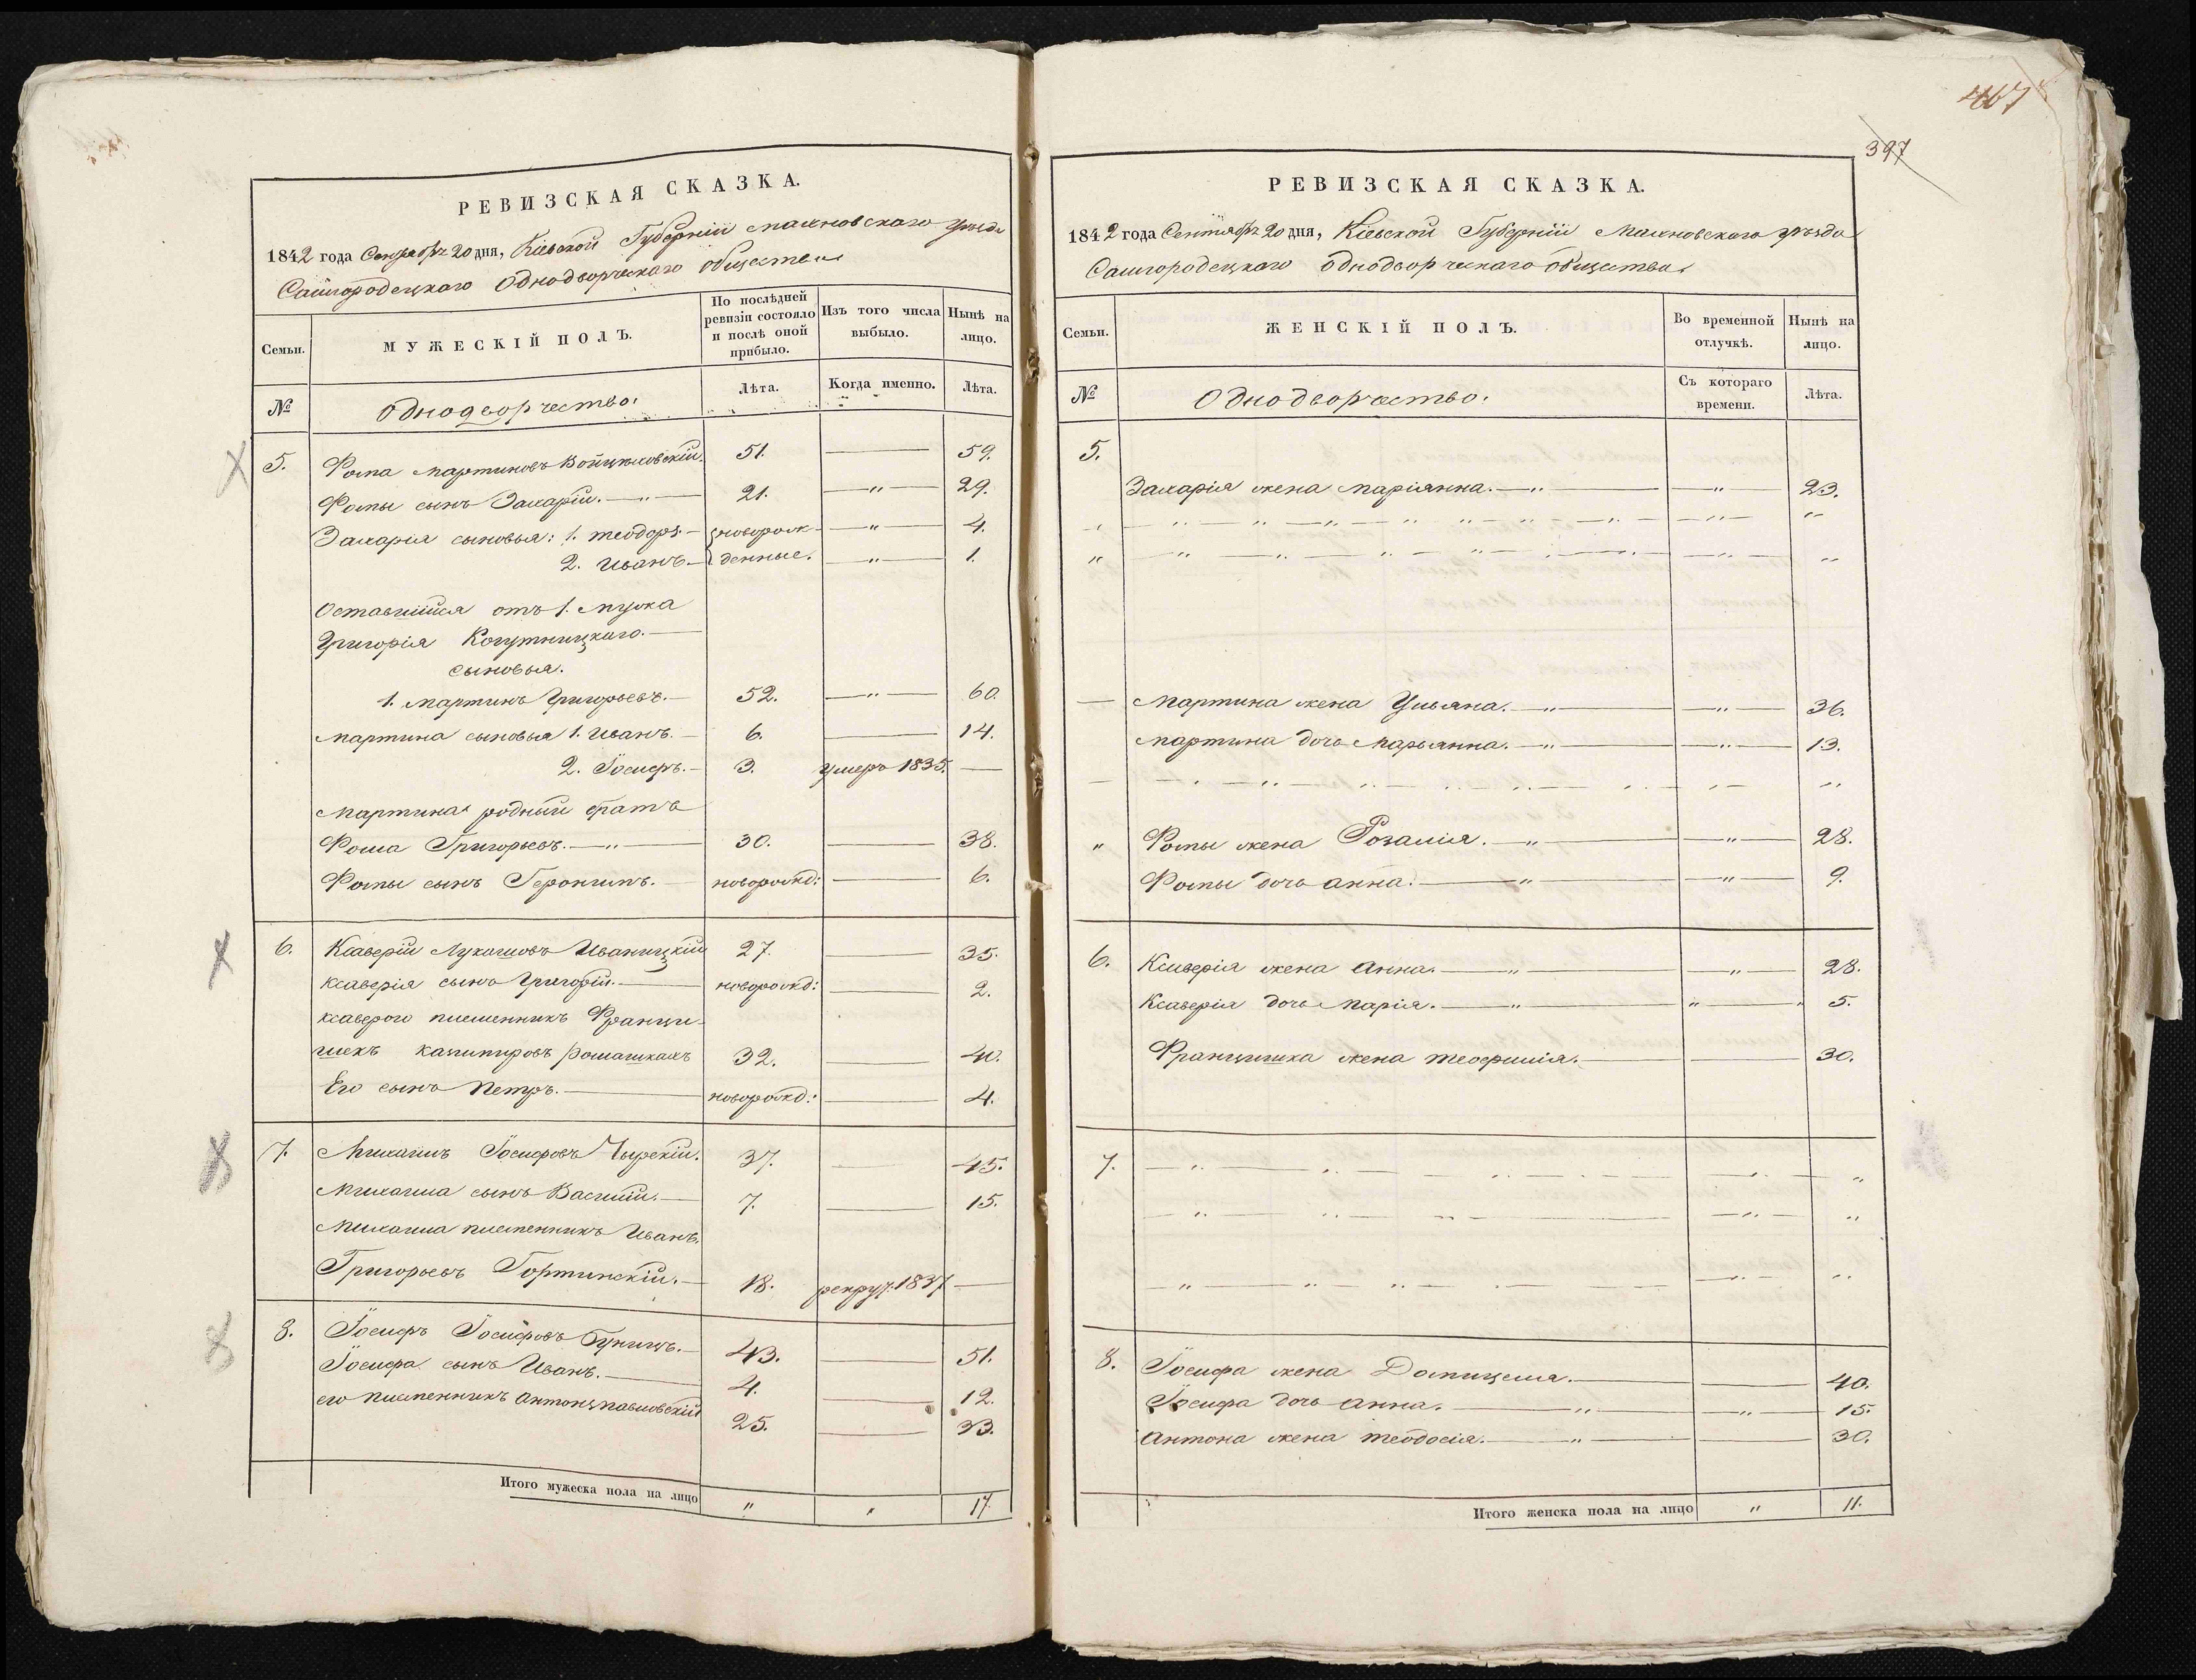 РЕВИЗСКАЯ СКАЗКА.
1842 года Сентября 20 дня, Кіевской Губерніи Махновскаго уѣзда
Самгородецкаго Однодворческаго общества
Семьи.
МУЖЕСКІЙ ПОЛЪ.
По послѣдней ревизіи состояло и послѣ оной прибыло.
Изъ того числа выбыло.
Нынѣ на лицо.
№
Однодворчество.
Лѣта.
Когда именно.
Лѣта.
5. Фома Мартиновъ 51. — 59.
Фомы сынъ Захарій. — " — 21. — " — 29.
Захарія сыновья: 1. Теодоръ. — новорож- — " — 4.
2. Иванъ. — денные. — " — 1.
Оставшійся отъ 1. мужа
Григорія Когутницкаго. —
сыновья.
1. Мартинъ Григорьевъ. — 52. — " — 60.
Мартина сыновья 1. Иванъ. — 6. — 14.
2. Іосифъ. — 3. умеръ 1835. —
Мартина родный братъ
Фома Григорьевъ. — " — 30. — 38.
Фомы сынъ Геронимъ. — новорожд: — 6.
6. Ксаверій Лукашовъ Иваницкій 27. — 35.
Ксаверія сынъ Григорій. — новорожд: — 2.
Ксаверого племенникъ Франци-
шекъ Казимировъ 32. — 40.
Его сынъ Петръ. — новорожд: — 4.
7. Михаилъ Іосифовъ 37. — 45.
Михаила сынъ Василій. — 7. — 15.
Михаила племенникъ Иванъ.
Григорьевъ Гортинскій. — 18. рекрут. 1837 —
8. Іосифъ Іосифовъ 43. — 51.
Іосифа сынъ Иванъ. — 4. — 12.
его племенникъ Антонъ Павловскій 25. — 33.
Итого мужеска пола на лицо " " 17.
467
397
РЕВИЗСКАЯ СКАЗКА.
1842 года Сентября 20 дня, Кіевской Губерніи Махновскаго уѣзда
Самгородецкаго Однодворческаго общества
Семьи.
ЖЕНСКІЙ ПОЛЪ.
Во временной отлучкѣ.
Нынѣ на лицо.
№
Однодворчество.
Съ котораго времени.
Лѣта.
5.
Захарія жена Маріанна. — " — — " — 23.
Мартина жена Ульяна. — " — — " — 36.
Мартина дочь Марьянна. — " — — " — 13.
" Фомы жена Розалія. — " — — " — 28.
Фомы дочь Анна. — " — — " — 9.
6. Ксаверія жена Анна. — " — — " — 28.
Ксаверія дочь Марія. — " — " — " 5.
Францишка жена Теофилія. — — 30.
7.
8. Іосифа жена Домицеля. — — 40.
Іосифа дочь Анна. — " — — " — 15.
Антона жена Теодосія. — " — — 30.
Итого женска пола на лицо " 11.